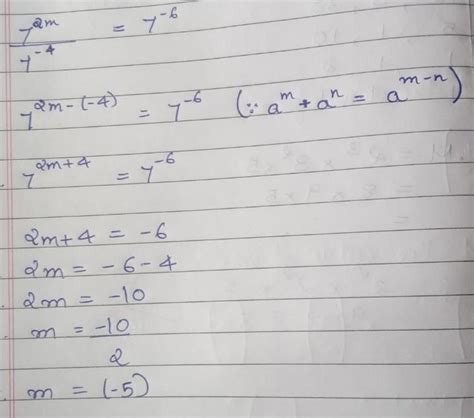 7^2m / 7^-4 = 7^-6
7^2m-(-4) = 7^-6 (∵ a^m ÷ a^n = a^m-n)
7^2m+4 = 7^-6
2m+4 = -6
2m = -6-4
2m = -10
m = -10/2
m = (-5)